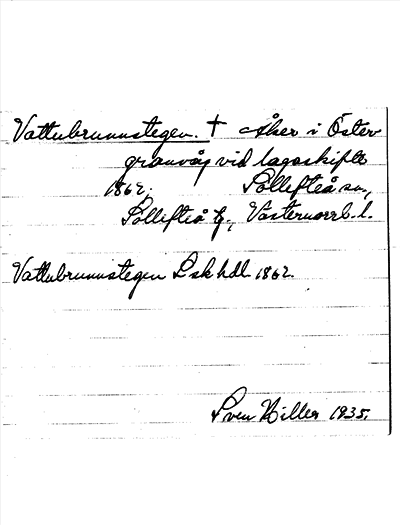 Vattubrunnstegen. † Åker i Öster
granvåg vid lagaskifte
1862. Sollefteå sn.,
Sollefteå tg., Västernorrl. l.
Vattubrunnstegen L sk hdl. 1862.
Sven Hiller 1935.